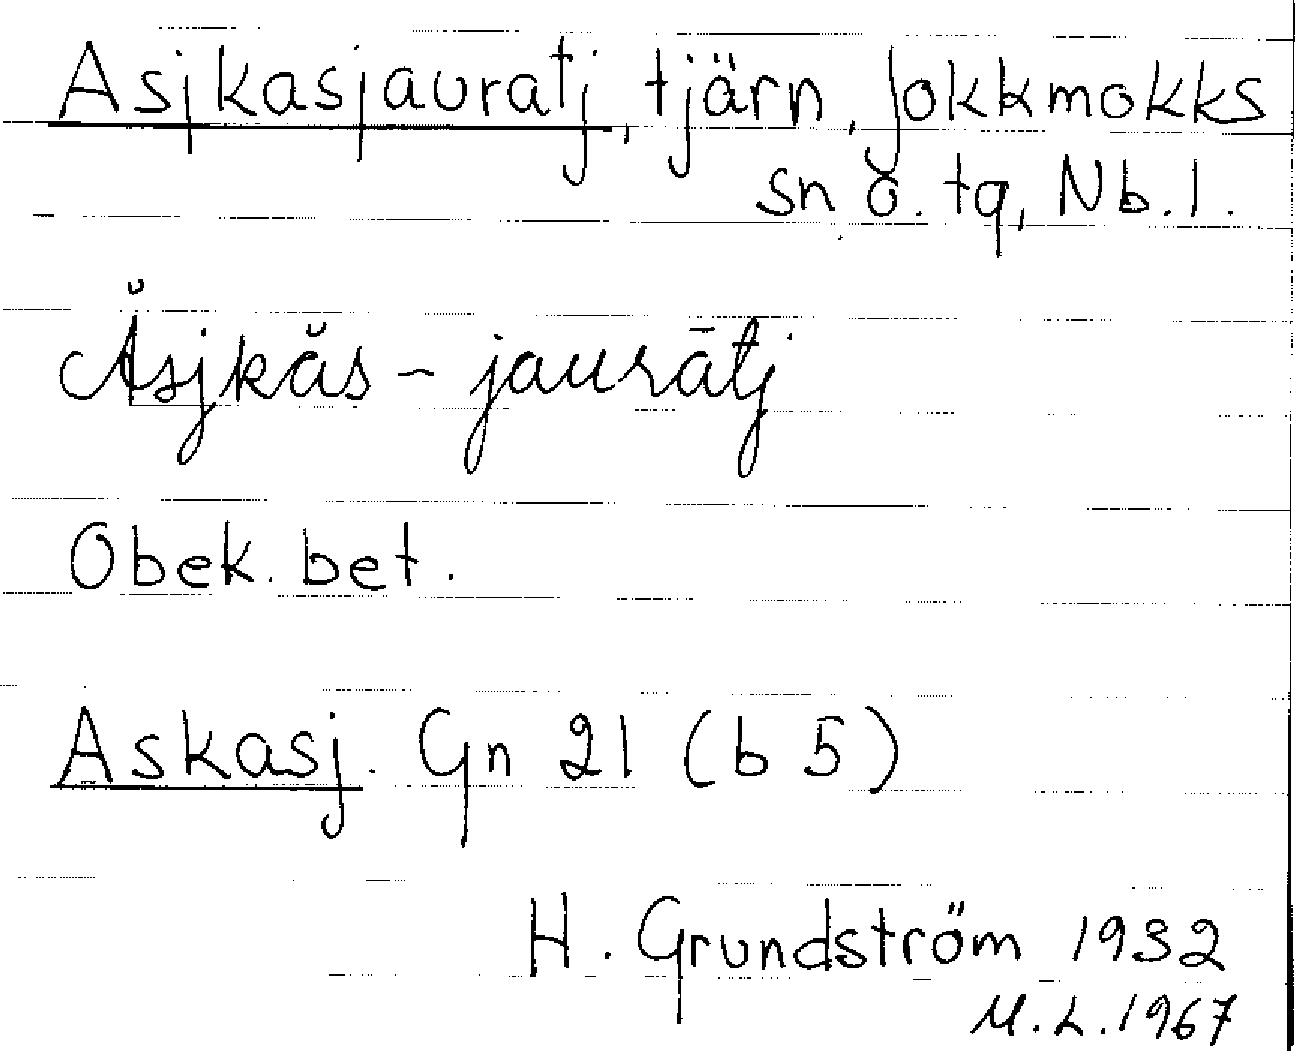 Asjkasjauratj, tjärn, Jokkmokks
sn o. tg, Nb. l.
Ăsjkăs - jaurātj
Obek. bet.
Askasj. Gn 21 (b 5)
H. Grundström 1932
M. L. 1967